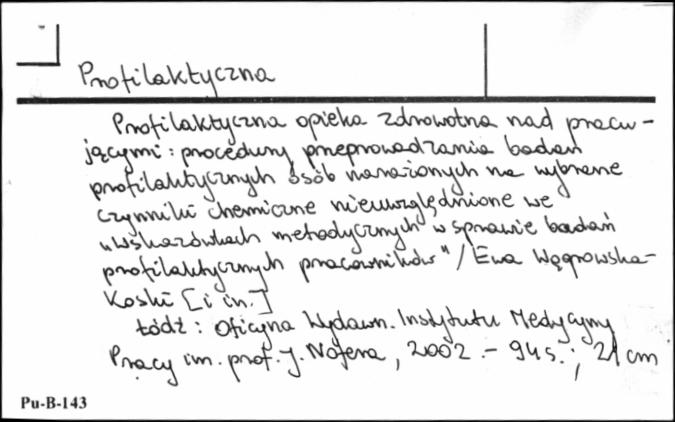 Profilaktyczna
Profilaktyczna opieka zdrowotna nad pracu-
jącymi : procedury przeprowadzania badań
profilaktycznych osób narażonych na wybrane
czynniki chemiczne nieuwzględnione we
„Wskazówkach metodycznych w sprawie badań
profilaktycznych pracowników" / Ewa Wągrowska-
Koski [i in.]
Łódź : Oficyna Wydawn. Instytutu Medycyny
Pracy im. prof. J. Nofera, 2002. - 94 s. ; 21 cm
Pu-B-143